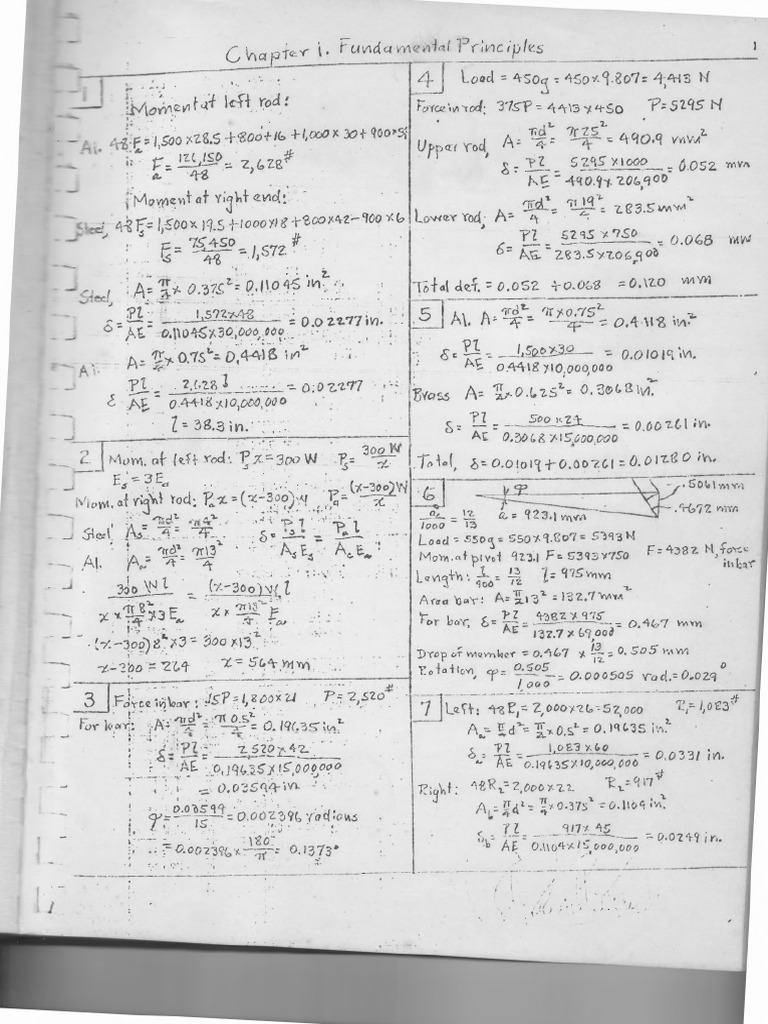 Chapter 1. Fundamental Principles
1
1
Moment at left rod:
Al. 48Fa=1,500×28.5+800+16+1,000×30+900×54
Fa=126,150/48=2,628#
Moment at right end:
Steel, 48Fs=1,500×19.5+1000×18+800×42-900×6
Fs=75,450/48=1,572#
Steel, A=π/4×0.375²=0.11045 in²
δ=Pl/AE=1,572×48/0.11045×30,000,000=0.02277 in.
Al. A=π/4×0.75²=0.4418 in²
δ Pl/AE=2,628 l/0.4418×10,000,000=0.02277
l=38.3 in.
2
Mom. at left rod: Ps x=300W Ps=300W/x
Es=3Ea
Mom. at right rod: Pa x=(x-300)W Pa=(x-300)W/x
Steel As=πd²/4=π8²/4 δ=Ps l/As Es=Pa l/Aa Ea
Al. Aa=πd²/4=π13²/4
300 W l/x×π8²/4×3Ea=(x-300)W l/x×π13²/4 Ea
(x-300)8²×3=300×13²
x-300=264 x=564 mm
3
Force in bar: 15P=1,800×21 P=2,520#
For bar: A=πd²/4=π0.5²/4=0.19635 in²
δ=Pl/AE=2,520×42/0.19635×15,000,000
=0.03594 in
φ=0.03594/15=0.002396 radians
=0.002396×180/π=0.1373°
4
Load=450g=450×9.807=4,413 N
Force in rod: 375P=4413×450 P=5295 N
Upper rod, A=πd²/4=π25²/4=490.9 mm²
δ=Pl/AE=5295×1000/490.9×206,900=0.052 mm
Lower rod, A=πd²/4=π19²/4=283.5 mm²
δ=Pl/AE=5295×750/283.5×206,900=0.068 mm
Total def.=0.052+0.068=0.120 mm
5
Al. A=πd²/4=π×0.75²/4=0.4418 in.²
δ=Pl/AE=1,500×30/0.4418×10,000,000=0.01019 in.
Brass A=π/4×0.625²=0.3068 in.²
δ=Pl/AE=500×24/0.3068×15,000,000=0.00261 in.
Total, δ=0.01019+0.00261=0.01280 in.
6
φ
.5061mm
.4672 mm
a/1000=12/13 a=923.1mm
Load=550g=550×9.807=5393N
Mom. at pivot 923.1 F=5393×750 F=4382 N, force in bar
Length: l/900=13/12 l=975mm
Area bar: A=π/4 13²=132.7mm²
For bar, δ=Pl/AE=4382×975/132.7×69,000=0.467 mm
Drop of member=0.467×13/12=0.505 mm
Rotation, φ=0.505/1,000=0.000505 rad.=0.029°
7
Left: 48R1=2,000×26=52,000 R1=1,083#
Aa=π/4 d²=π/4×0.5²=0.19635 in²
δa=Pl/AE=1,083×60/0.19635×10,000,000=0.0331 in.
Right: 48R2=2,000×22 R2=917#
Ab=π/4 d²=π/4×0.375²=0.1104 in.
δb=Pl/AE=917×45/0.1104×15,000,000=0.0249 in.